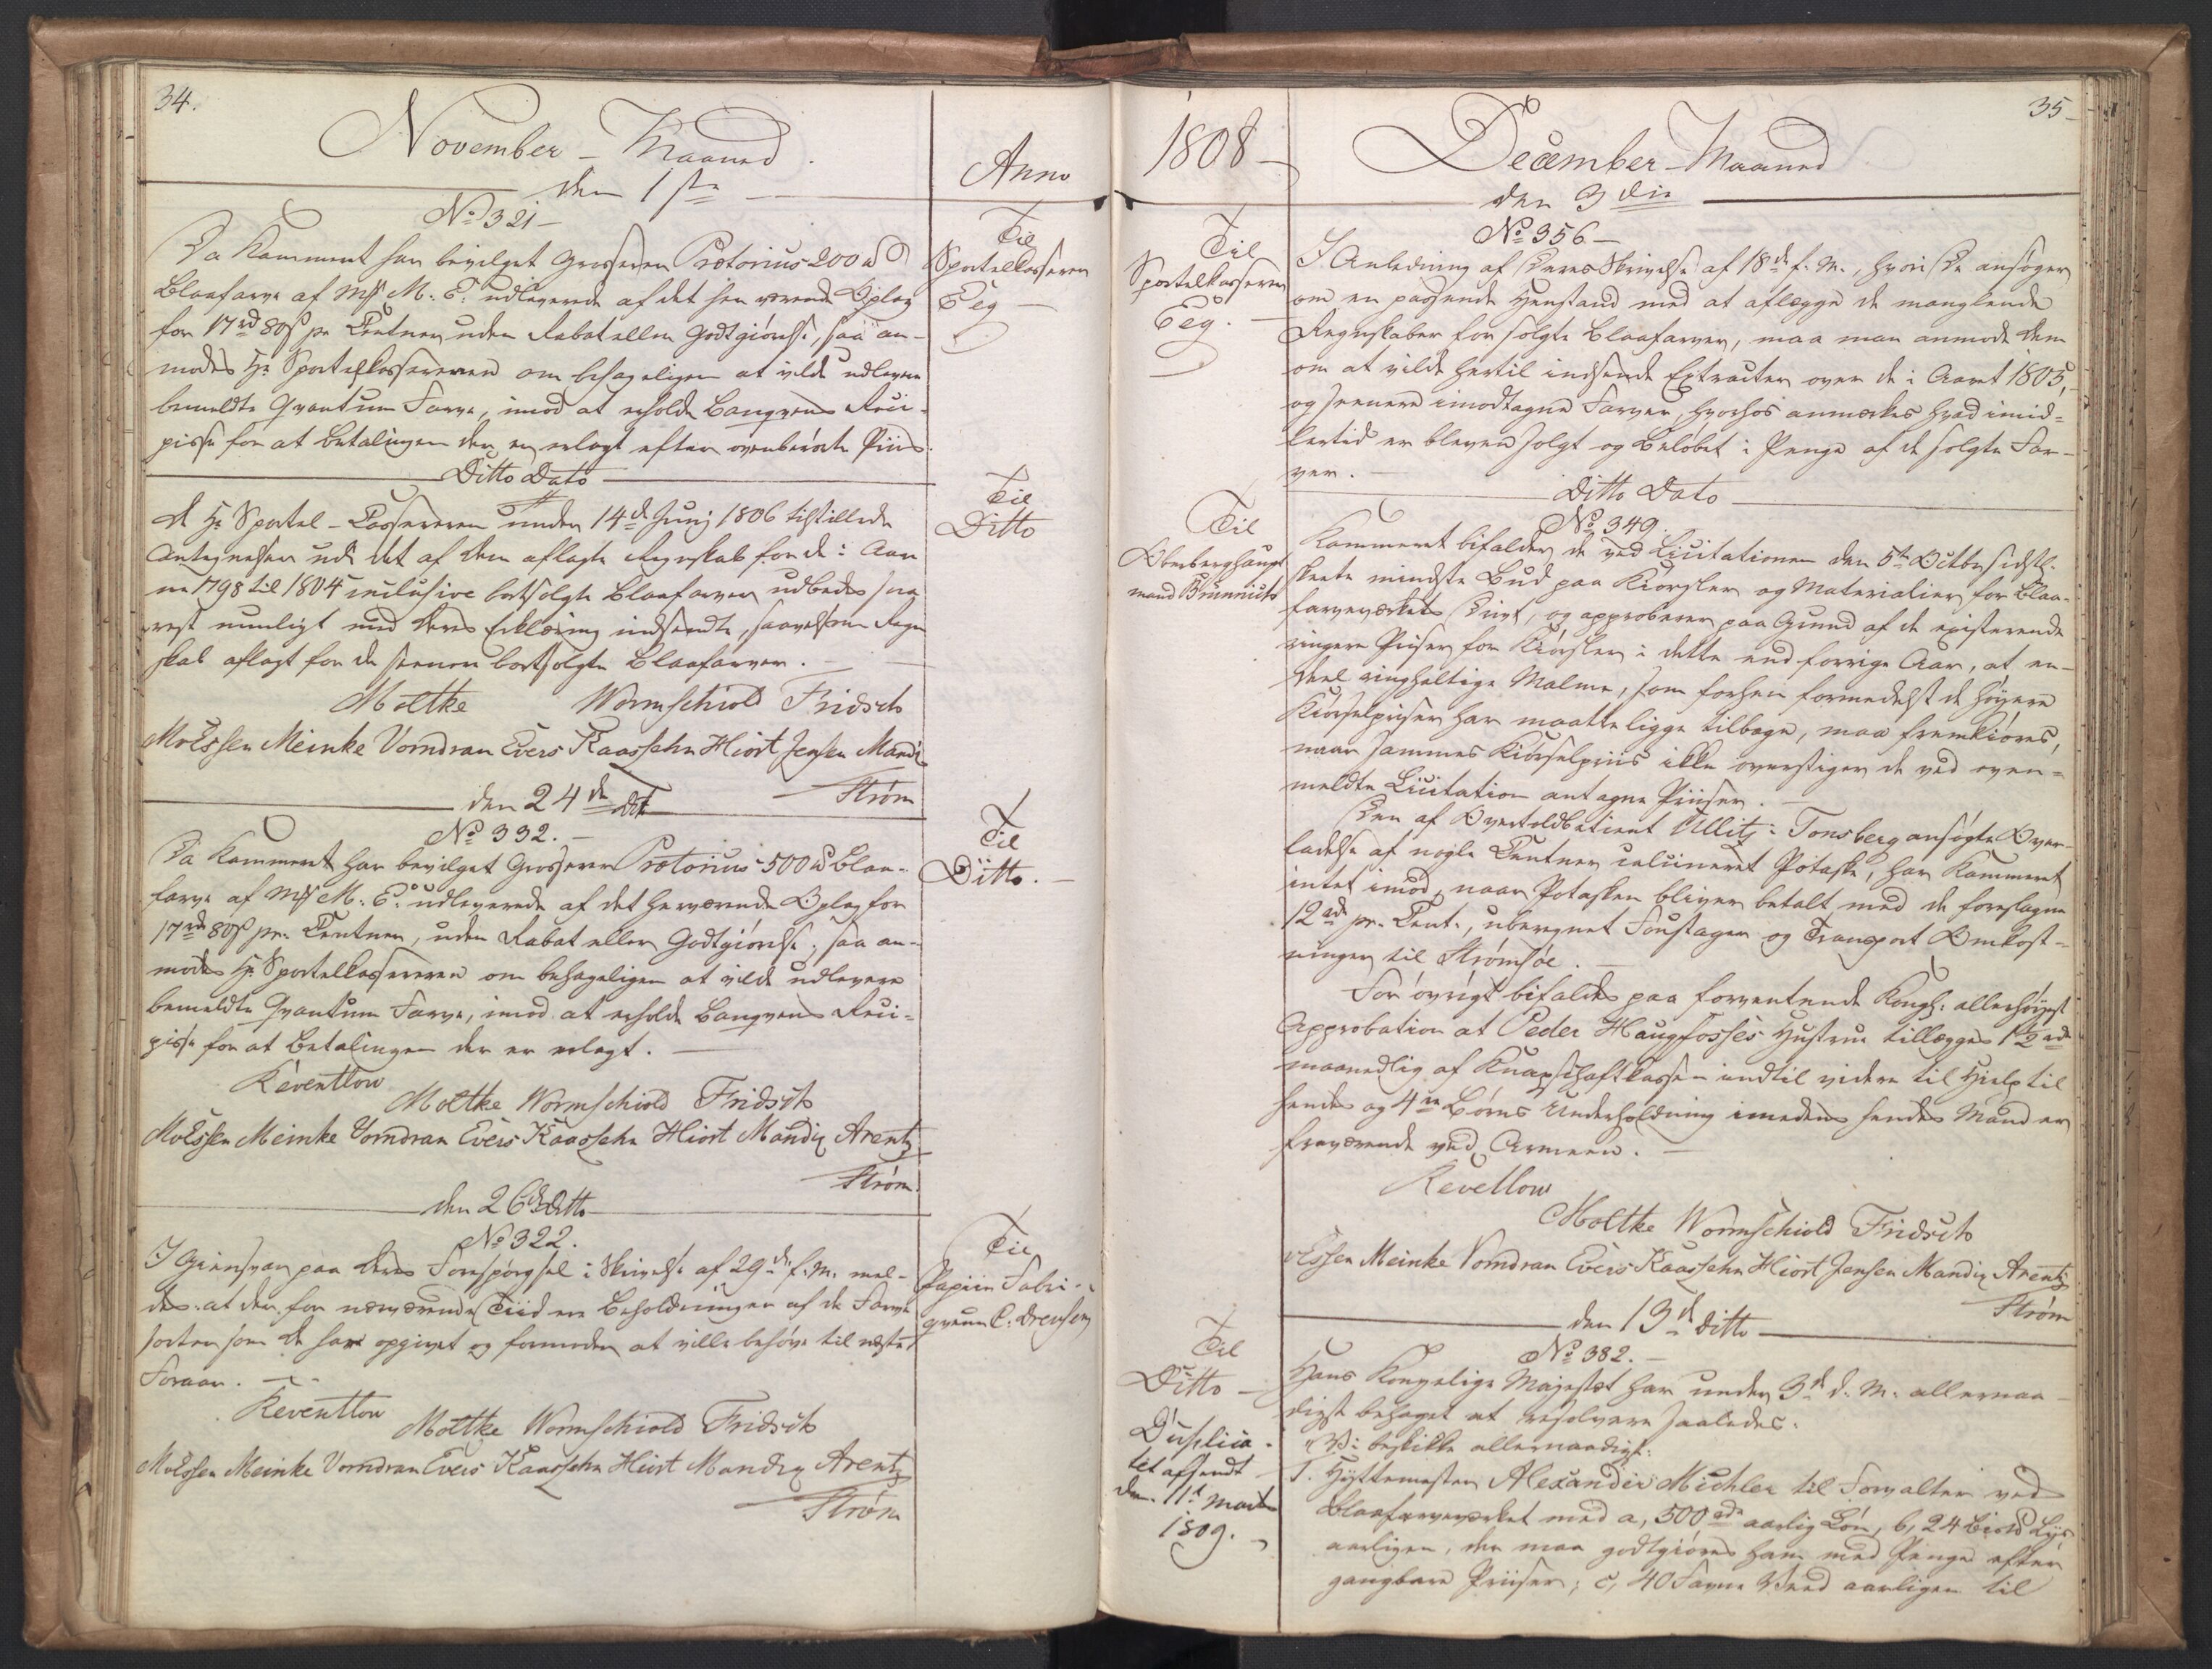 34.
November - Maaned.
Anno
den 1ste
No 321 -
Til
Sportelkasserer
Eeg -
Da Kammeret har bevilget Grosserer Prætorius 200 ℔
Blaafarve af M/K M. E. udleverede af det her værende Oplag
for 17 rd 80 s pr Centner uden Rabat eller Godtgiörelse, saa an-
modes Hr Sportelkassereren om behageligen at vilde udlevere
bemeldte Qvantum Farve, imod at erholde Banqvens Reci-
pisse for at Betalingen der er erlagt efter ovenberörte Priis.
Ditto Dato
Til
Ditto
De Hr Sportel-Cassereren under 14de Junij 1806 tilstillede
Antegnelser ved det af dem aflagte Regnskab for de i Aar
ne 1798 til 1804 inclusive bortsolgte Blaafarver udbedes sna
rest mueligt med deres Erklæring indsendte, saavelsom Regn
skab aflagt for de senere bortsolgte Blaafarver. -
Moltke Wormschiold Fridsch
MvEssen Meinke Vorndran Evers Kaassehn Hiort Jensen Mandix
Ström
den 24de dito
No 332. -
Til
Ditto. -
Da Kammeret har bevilget Grosserer Prætorius 500 ℔ Blaa-
farve af M/K M. E. udleverede af det herværende Oplag for
17 rd 80 s pr. Centner, uden Rabat eller Godtgiörelse; saa an-
modes Hr Sportelkassereren om behageligen at vilde udlevere
bemeldte Qvantum Farve, imod at erholde Banqvens Reci-
pisse for at Betalingen der er erlagt. -
Reventlow
Moltke Wormschiold Fridsch
MvEssen Meinke Vorndran Evers Kaassehn Hiort Mandix Arentz
Ström.
den 26de Ditto
No 322.
Til
Papiir Fabri-
qveur C. Drewsen
I Giensvar paa deres Forespörgsel i Skrivelse af 29de f. M. mel-
des: at der for nærværende Tiid er Beholdninger af de Farve
sorter som De har opgivet og formoder at ville behöve til næste
Foraar. -
Reventlow
Moltke Wormschiold Fridsch
MvEssen Meinke Vorndran Evers Kaassehn Hiort Mandix Arentz
Ström
1808 -
December - Maaned
35
den 3die
No 356 -
Til
Sportelkasserer
Eeg. -
I Anledning af Deres Skrivelse af 18de f. M., hvori De ansöger
om en passende Henstand med at aflægge de manglende
Regnskaber for solgte Blaafarver, maa man anmode dem
om at vilde hertil indsende Extracter over de i Aaret 1805,
og senere imodtagne Farver, hvorhos anmærkes hvad imid-
lertid er bleven solgt og Belöbet i Penge af de solgte Far-
ver. -
Ditto Dato
No 349.
Til
Oberberghaupt
mand Brünnich
Kammeret bifalder de ved Licitationen den 5te Octbr sidstl.
skeete mindste Bud paa Kiörsler og Materialier for Blaa-
farveværkets Drivt, og approberer paa Grund af de existerende
ringere Priser for Kiörsler i dette end forrige Aar, at en-
deel ringhaltige Malme, som forhen formedelst de höyere
Kiörselpriser har maatte ligge tilbage, maa fremkiöres,
naar sammes Kiörselpriis ikke overstiger de ved oven-
meldte Licitation antagne Priser. -
Den af Overtoldbetient Ullitz i Tonsberg ansögte Over-
ladelse af nogle Centner calcineret Potaske, har Kammeret
intet imod, naar Potasken bliver betalt med de foreslagne
12 rd pr. Cent., uberegnet Foustager og Transport Omkost-
ninger til Strömsöe. -
For övrigt bifaldes paa forventende Kongl: allerhöyest
Approbation at Peder Haugfosses Hustrue tillægges 1½ rd
maanedlig af Knapschaftkassen indtil videre til Hielp til
hendes og 4re Börns Underholdning imedens hendes Mand er
fraværende ved Armeen. -
Revetlow
Moltke Wormschiold Fridsch
vEssen Meinke Vorndran Evers Kaassehn Hiort Jensen Mandix Arentz
Ström
den 13de Ditto
No 382. -
Til
Ditto -
Duplica-
tet afsendt
den 11te Martz
1809. -
Hans Kongelige Majestæt har under 3de d. M. allernaa-
digst behaget at resolvere saaledes:
"Vi beskikke allernaadigst:
1. Hyttemester Alexander Michler til Forvalter ved
Blaafarveværket med a, 500 rd aarlig Lön, b, 24 Bismd Lys
aarligen, der maa godtgiöres ham med Penge efter
gangbare Priser; c, 40 Favne Veed aarligen til